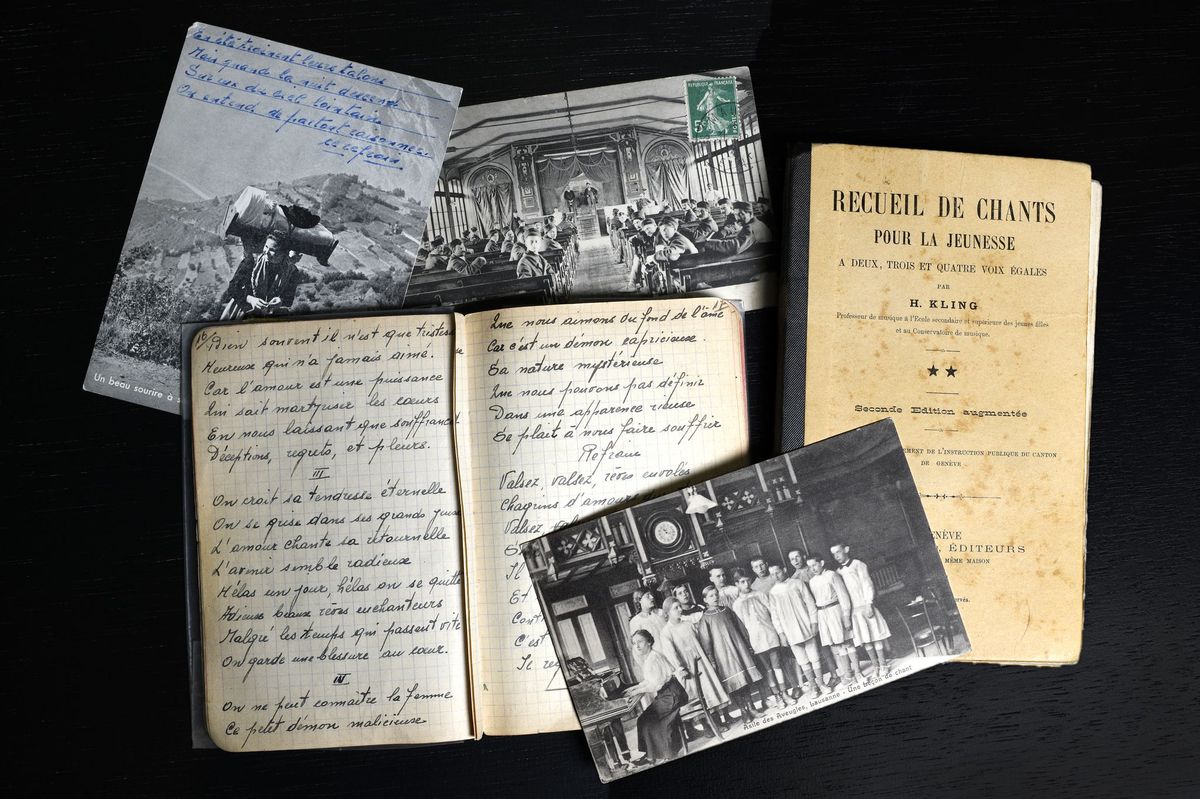 Mais quand la nuit descend
Sur un du ciel lointain
On entend de partout
ce refrain
Un beau sourire à
REPUBLIQUE FRANÇAISE
5c
RECUEIL DE CHANTS
POUR LA JEUNESSE
A DEUX, TROIS ET QUATRE VOIX ÉGALES
PAR
H. KLING
Professeur de musique à l'Ecole secondaire et supérieure des jeunes filles
et au Conservatoire de musique.
★★
Seconde Edition augmentée
EMENT DE L'INSTRUCTION PUBLIQUE DU CANTON
DE GENÈVE
ENÈVE
ÉDITEURS
MÊME MAISON
16/
Bien souvent il n'est que tristesse
Heureuse qui n'a jamais aimé.
Car l'amour est une puissance
Qui sait martyriser les cœurs
En nous laissant que souffrance
Déceptions, regrets, et pleurs.
III
On croit sa tendresse éternelle
On se grise dans ses grands yeux
L'amour chante sa retournelle
L'avenir semble radieux
Hélas un jour, hélas on se quitte
Adieux beaux rêves enchanteurs
Malgré les temps qui passent vite
On garde une blessure au cœur.
IV
On ne peut connaître la femme
Ce petit démon malicieuse
17
Que nous aimons du fond de l'âme
Car c'est un démon capricieuse.
Sa nature mystérieuse
Que nous pouvons pas définir
Dans une apparence rieuse
Se plait à nous faire souffrir
Refrain
Valsez, valsez, rêves envolés
Chagrins d'amours
Valsez
Il
Et
C'est
Asile des Aveugles, Lausanne - Une leçon de chant